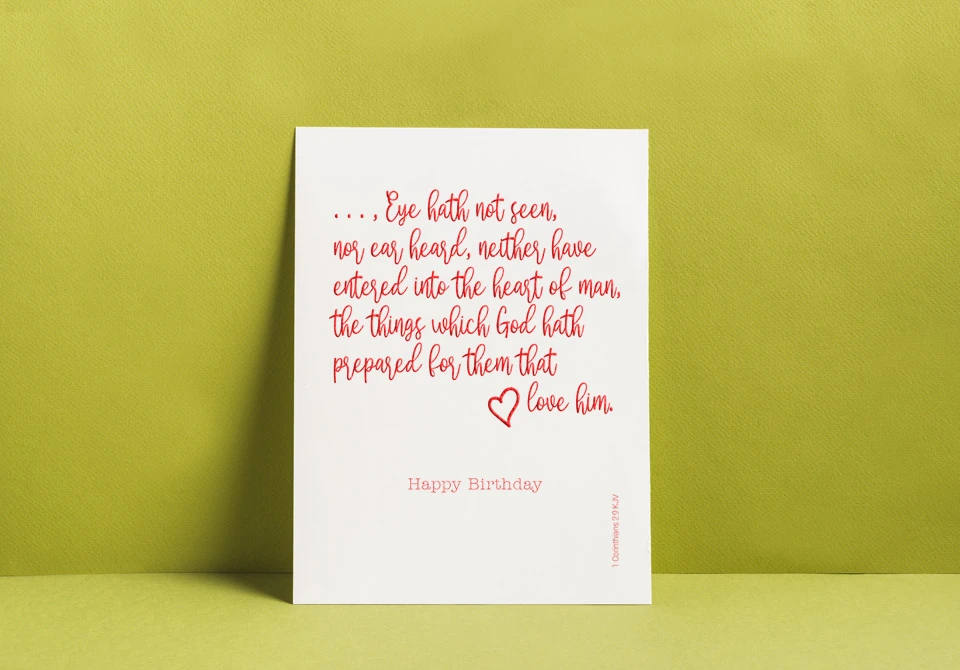 . . . , Eye hath not seen,
nor ear heard, neither have
entered into the heart of man,
the things which God hath
prepared for them that
love him.
Happy Birthday
1 Corinthians 2:9 KJV